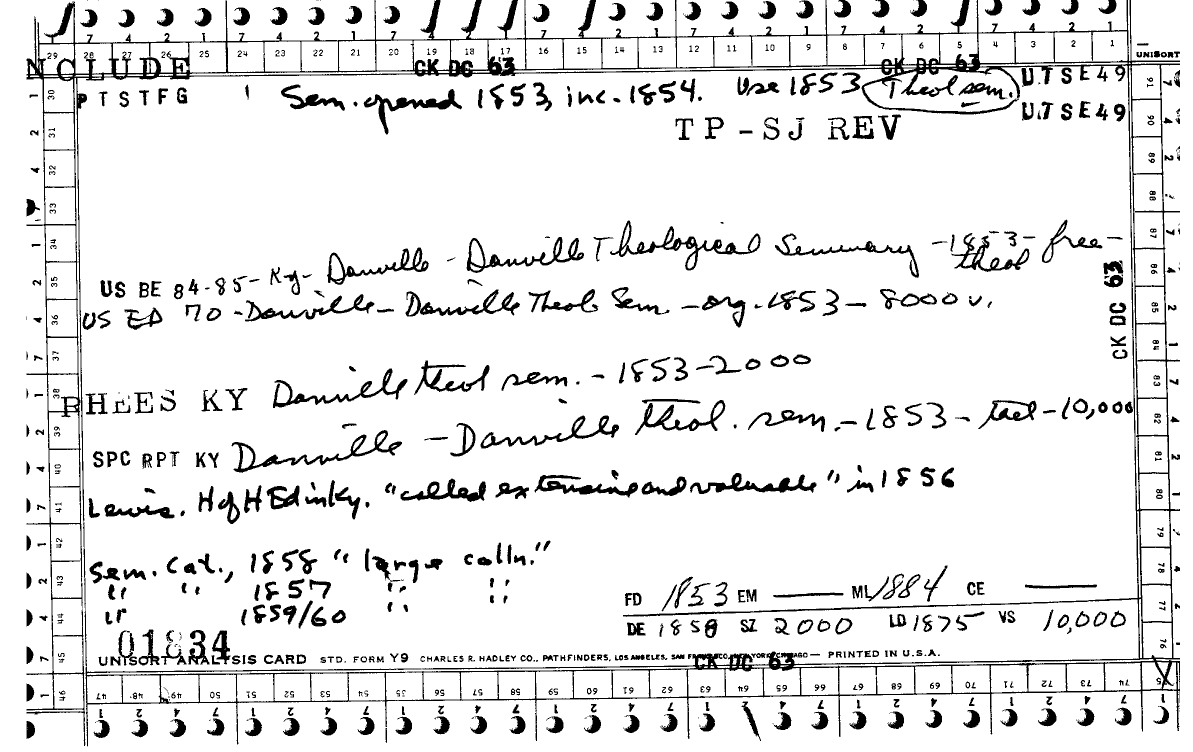 7 4 2 1 7 4 2 1 7 4 2 1 7 4 2 1 7 4 2 1 7 4 2 1 7 4 2 1
29 28 27 26 25 24 23 22 21 20 19 18 17 16 15 14 13 12 11 10 9 8 7 6 5 4 3 2 1 UNISORT
NCLUDE CK DC 63 CK DC 63 U.T S E 49
P T S T F G Sem. opened 1853, inc. 1854. Use 1853 Theol sem. U.T S E 49
TP-SJ REV
US BE 84-85- Ky- Danville - Danville Theological Seminary - 1853 - free - theol
US ED 70 - Danville - Danville Theol. Sem. - org. 1853 - 8000 v.
CK DC 63
RHEES KY Danville theol sem. - 1853 - 2000
SPC RPT KY Danville - Danville theol. sem. - 1853 - - 10,000
Lewis. H of H Ed in Ky. "called extensive and valuable" in 1856
Sem. Cat., 1858 "large colln."
" " 1857 " "
" 1859/60 "
FD 1853 EM —— ML 1884 CE ——
DE 1858 SZ 2000 LD 1875 VS 10,000
01834
UNISORT ANALYSIS CARD STD. FORM Y9 CHARLES R. HADLEY CO., PATHFINDERS, LOS ANGELES, SAN FRANCISCO, NEW YORK, CHICAGO — PRINTED IN U.S.A.
CK DC 63
46 47 48 49 50 51 52 53 54 55 56 57 58 59 60 61 62 63 64 65 66 67 68 69 70 71 72 73 74 75